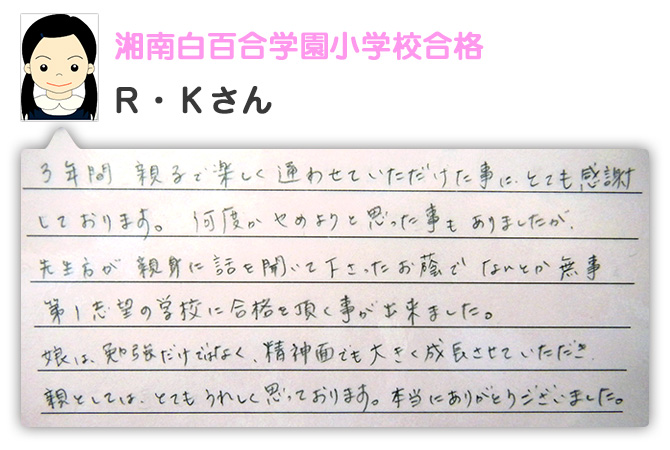 湘南白百合学園小学校合格
R・Kさん
3年間 親子で楽しく通わせていただけた事に、とても感謝
しております。 何度かやめようと思った事も ありましたが、
先生方が 親身に話を聞いて下さったお蔭で なんとか無事
第1志望の学校に合格を頂く事が出来ました。
娘は、勉強だけではなく、精神面でも大きく成長させていただき、
親としては、とてもうれしく思っております。本当にありがとうございました。